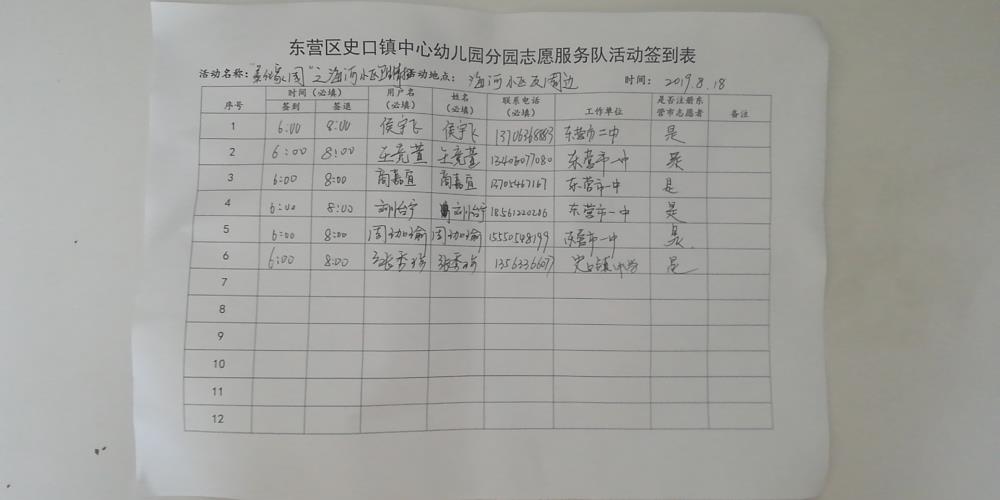 东营区史口镇中心幼儿园分园志愿服务队活动签到表
活动名称: 家园"之海河小区 活动地点: 海河小区及周边 时间: 2019.8.18
序号 时间(必填) 用户名(必填) 姓名(必填) 联系电话(必填) 工作单位 是否注册东营市志愿者 备注
签到 签退
1 6:00 8:00 侯宇飞 侯宇飞 13706368883 东营市二中 是
2 6:00 8:00 王竞萱 王竞萱 13406077080 东营市一中 是
3 6:00 8:00 商嘉宜 商嘉宜 13705467167 东营市一中 是
4 6:00 8:00 刘怡宁 刘怡宁 18561220206 东营市一中 是
5 6:00 8:00 周珈瑜 周珈瑜 15550548199 东营市一中 是
6 6:00 8:00 张秀瑞 张秀瑞 13563366077 史口镇中学 是
7
8
9
10
11
12